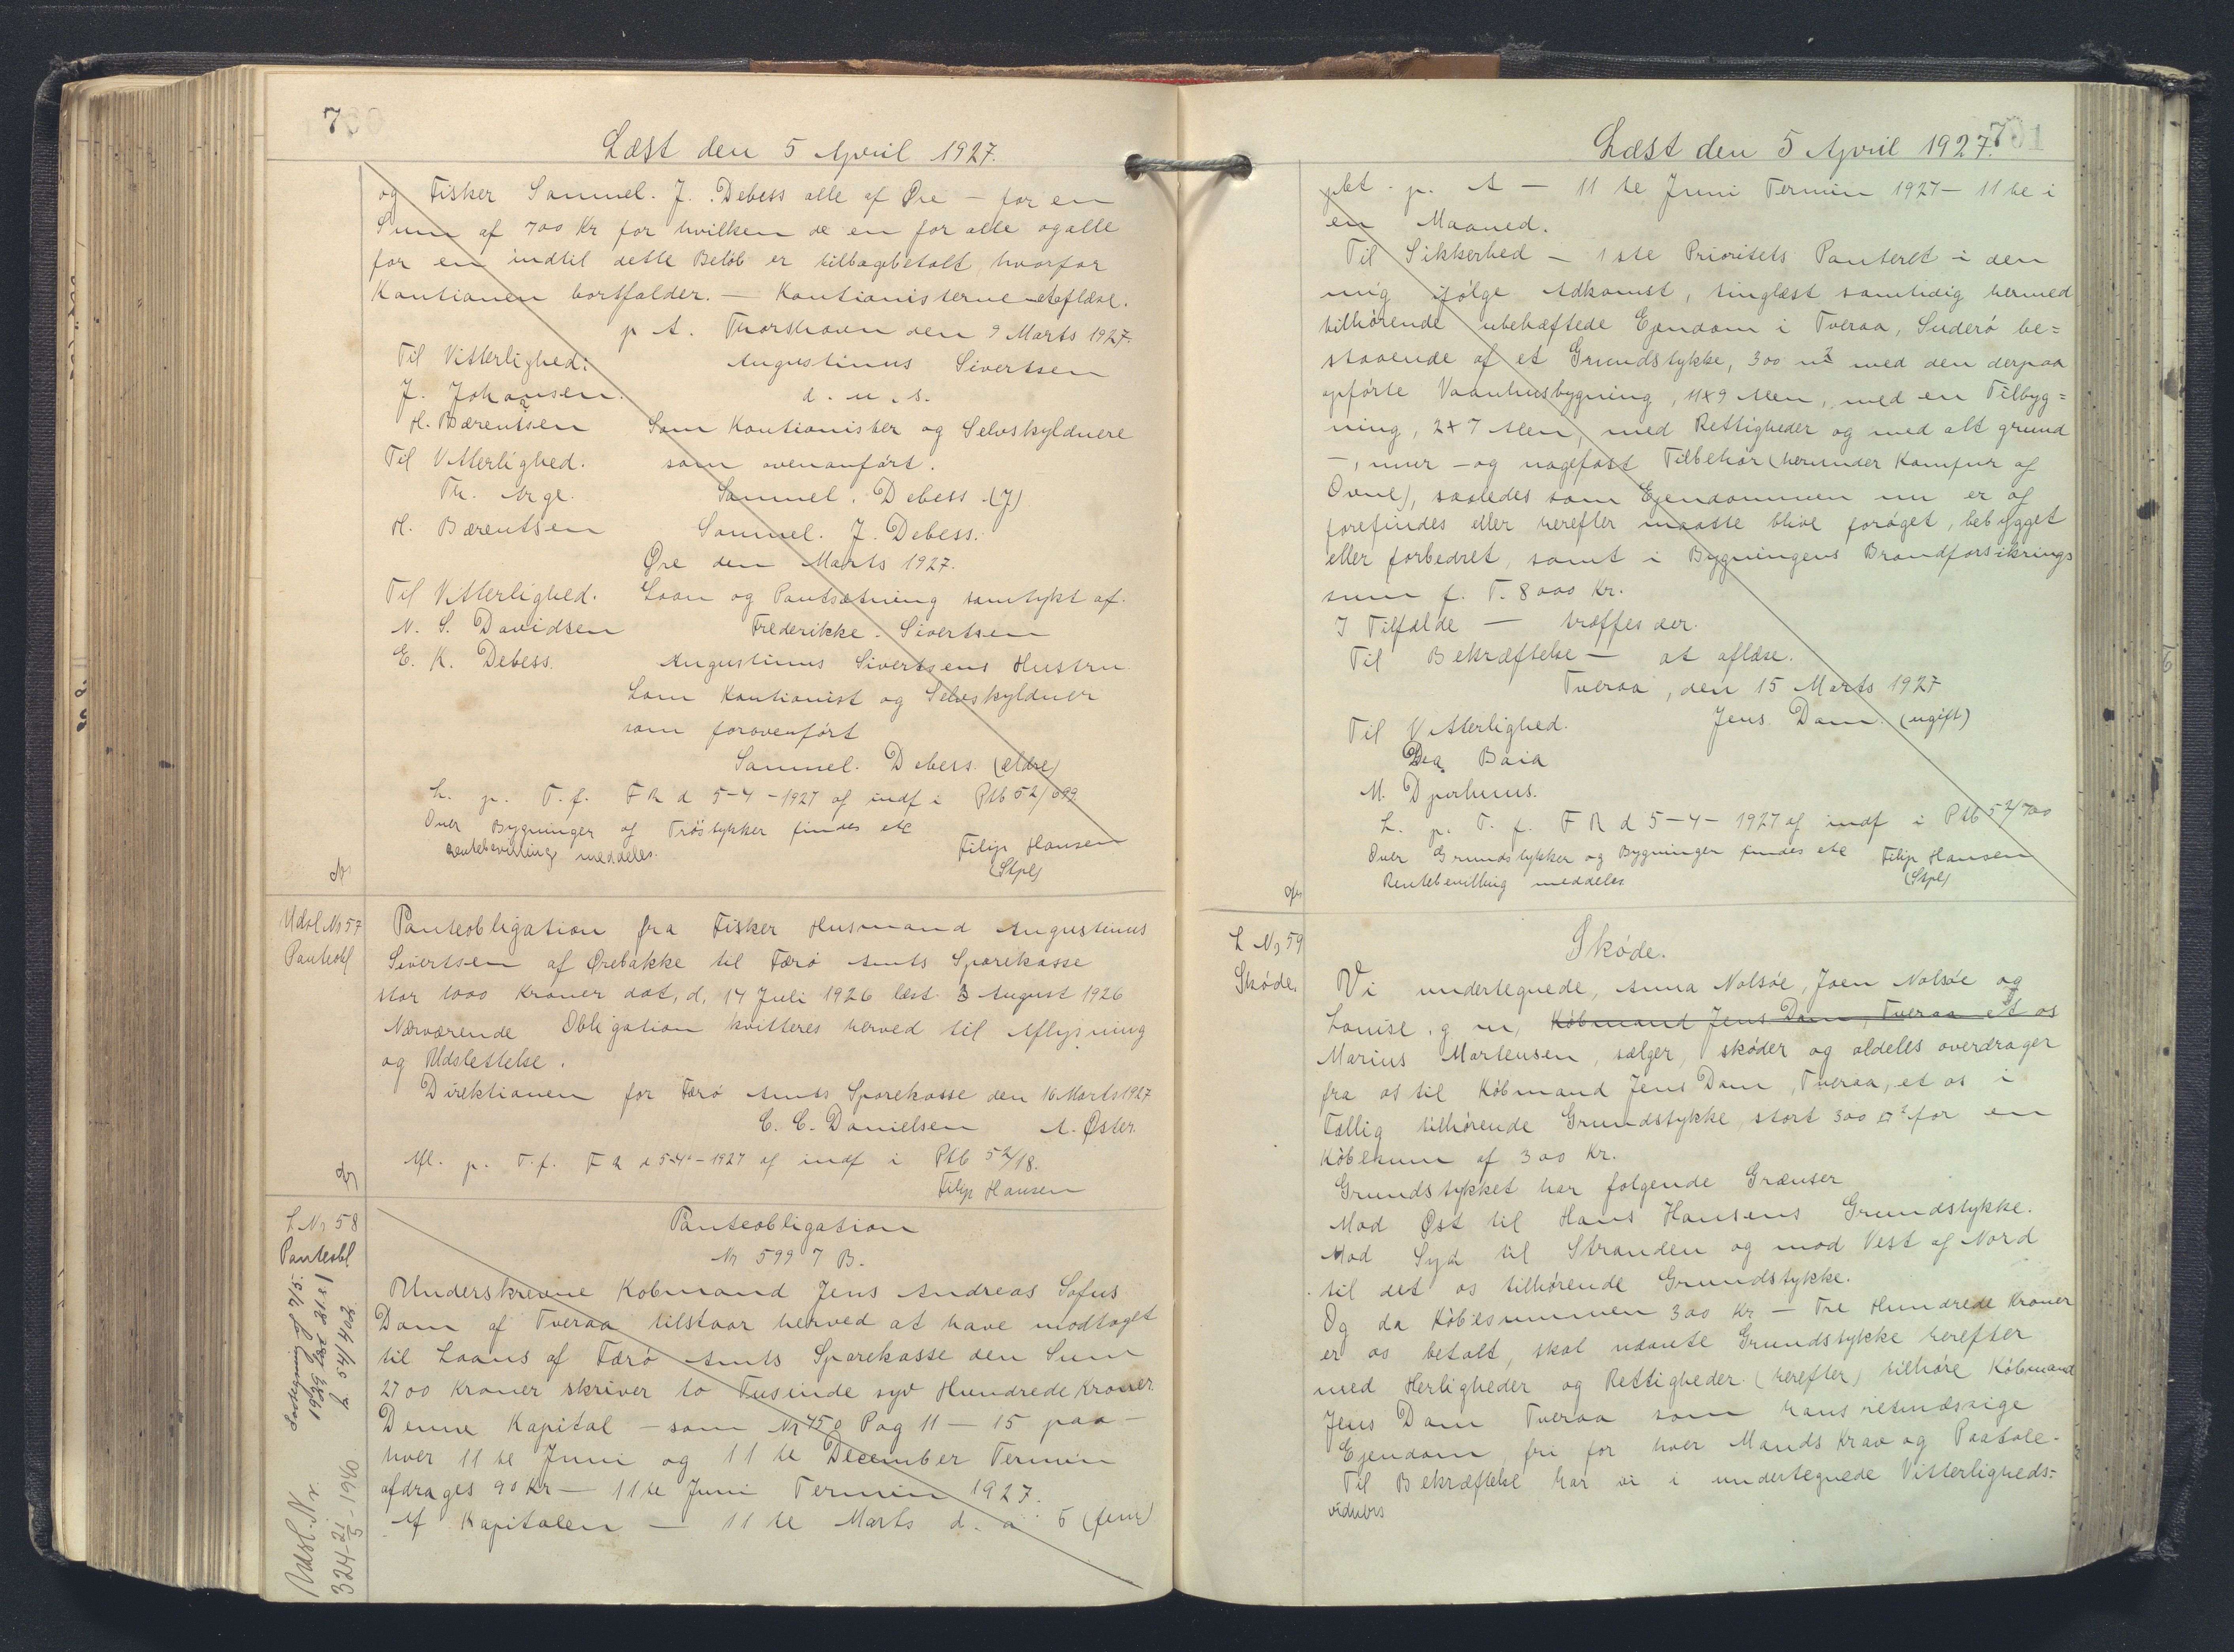 7
Læst den 5 April 1927.
og Fisker Samuel. J. Debess alle af Øre – for en
Sum af 700 Kr for hvilken de en for alle og alle
for en indtil dette Beløb er tilbagebetalt hvorfor
Kautionen bortfalder. — Kautionisterne – at aflæse.
p t. Thorshavn den 9 Marts 1927.
Til Vitterlighed: Augustinus Sivertsen
J. Johansen. d. u. s.
H. Bærentsen Som Kautionister og Selvskyldnere
Til Vitterlighed. som ovenanført.
Th. Arge. Samuel. Debess (J)
H. Bærentsen Samuel. J. Debess.
Øre den Marts 1927.
Til Vitterlighed. Laan og Pantsætning samtykt af.
N. S. Davidsen Frederikke. Sivertsen
E. K. Debess. Augustinus Sivertsens Hustru
Som Kautionist og Selvskyldner
som forovenført
Samuel. Debess. (ældre)
L. p. T. f. F R d 5-4-1927 og indf i Ptb 52/699
Over Bygninger og Trøstykker findes etc
Rentebevilling meddeles. Filip Hansen
(Stpl)
Udsl. Nr 57
Panteobl
Panteobligation fra Fisker Husmand Augustinus
Sivertsen af Ørebakke til Færø Amts Sparekasse
stor 1000 Kroner dat, d, 14 Juli 1926 læst 3 August 1926
Nærværende Obligation kvitteres herved til Aflysning
og Udslettelse.
Direktionen for Færø Amts Sparekasse den 16 Marts 1927
C. C. Danielsen A. Øster.
Afl. p. T. f. F R d 5-4-1927 og indf i Ptb 52/18.
Filip Hansen
L Nr 58
Panteobl
Panteobligation
Nr 5997 B.
Underskrevne Købmand Jens Andreas Sofus
Dam af Tveraa tilstaar herved at have modtaget
til Laans af Færø Amts Sparekasse den Sum
2700 Kroner skriver to Tusinde syv Hundrede Kroner.
Denne Kapital – som Nr 450 Pag 11 – 15 paa –
hver 11 te Juni og 11 te December Termin
afdrages 90 Kr – 11te Juni Termin 1927.
Af Kapitalen — 11 te Marts d. a 6 (fem)
1939 læst 31 5/
p. 54/402
Udsl. Nr.
324 - 21/5 - 1940
701
Læst den 5 April 1927.
pct. p. A — 11 te Juni Termin 1927 – 11 te i
en Maaned.
Til Sikkerhed — 1ste Prioritets Panteret i den
mig ifølge Adkomst, tinglæst samtidig hermed
tilhørende ubehæftede Ejendom i Tveraa, Suderø be=
staaende af et Grundstykke, 300 m² med den derpaa
opførte Vaanhusbygning, 11x9 Alen, med en Tilbyg=
ning, 2x7 Alen, med Rettigheder og med alt grund
–, mur – og nagefast Tilbehør (herunder Komfur og
Ovne), saaledes som Ejendommen nu er og
forefindes eller herefter maatte blive forøget, bebygget
eller forbedret, samt i Bygningens Brandforsikrings
sum f. T. 8000 Kr.
I Tilfælde — træffes der.
Til Bekræftelse — at aflæse.
Tveraa, den 15 Marts 1927
Til Vitterlighed. Jens Dam. (ugift)
M. Djurhuus.
L. p. T. f. F R d 5-4-1927 og indf i Ptb 52/700
Over Grundstykker og Bygninger findes etc Filip Hansen
Rentebevilling meddeles (Stpl)
L Nr 59
Skøde.
Skøde.
Vi undertegnede, Anna Nolsøe, Joen Nolsøe og
Louise. g m, Købmand Jens Dam, Tveraa et os
Marius Mortensen, sælger, skøder og aldeles overdrager
fra os til Købmand Jens Dam, Tveraa, et os i
Fællig tilhørende Grundstykke, stort 300 m² for en
Købesum af 300 Kr.
Grundstykket har følgende Grænser
Mod Øst til Hans Hansens Grundstykke.
Mod Syd til Stranden og mod Vest og Nord
til det os tilhørende Grundstykke.
Og da Købesummen 300 Kr – Tre Hundrede Kroner
er os betalt, skal nævnte Grundstykke herefter
med Herligheder og Rettigheder (herefter) tilhøre Købmand
Jens Dam Tveraa som hans retmæssige
Ejendom fri for hver Mands Krav og Paatale.
Til Bekræftelse har vi i undertegnede Vitterligheds=
vidners